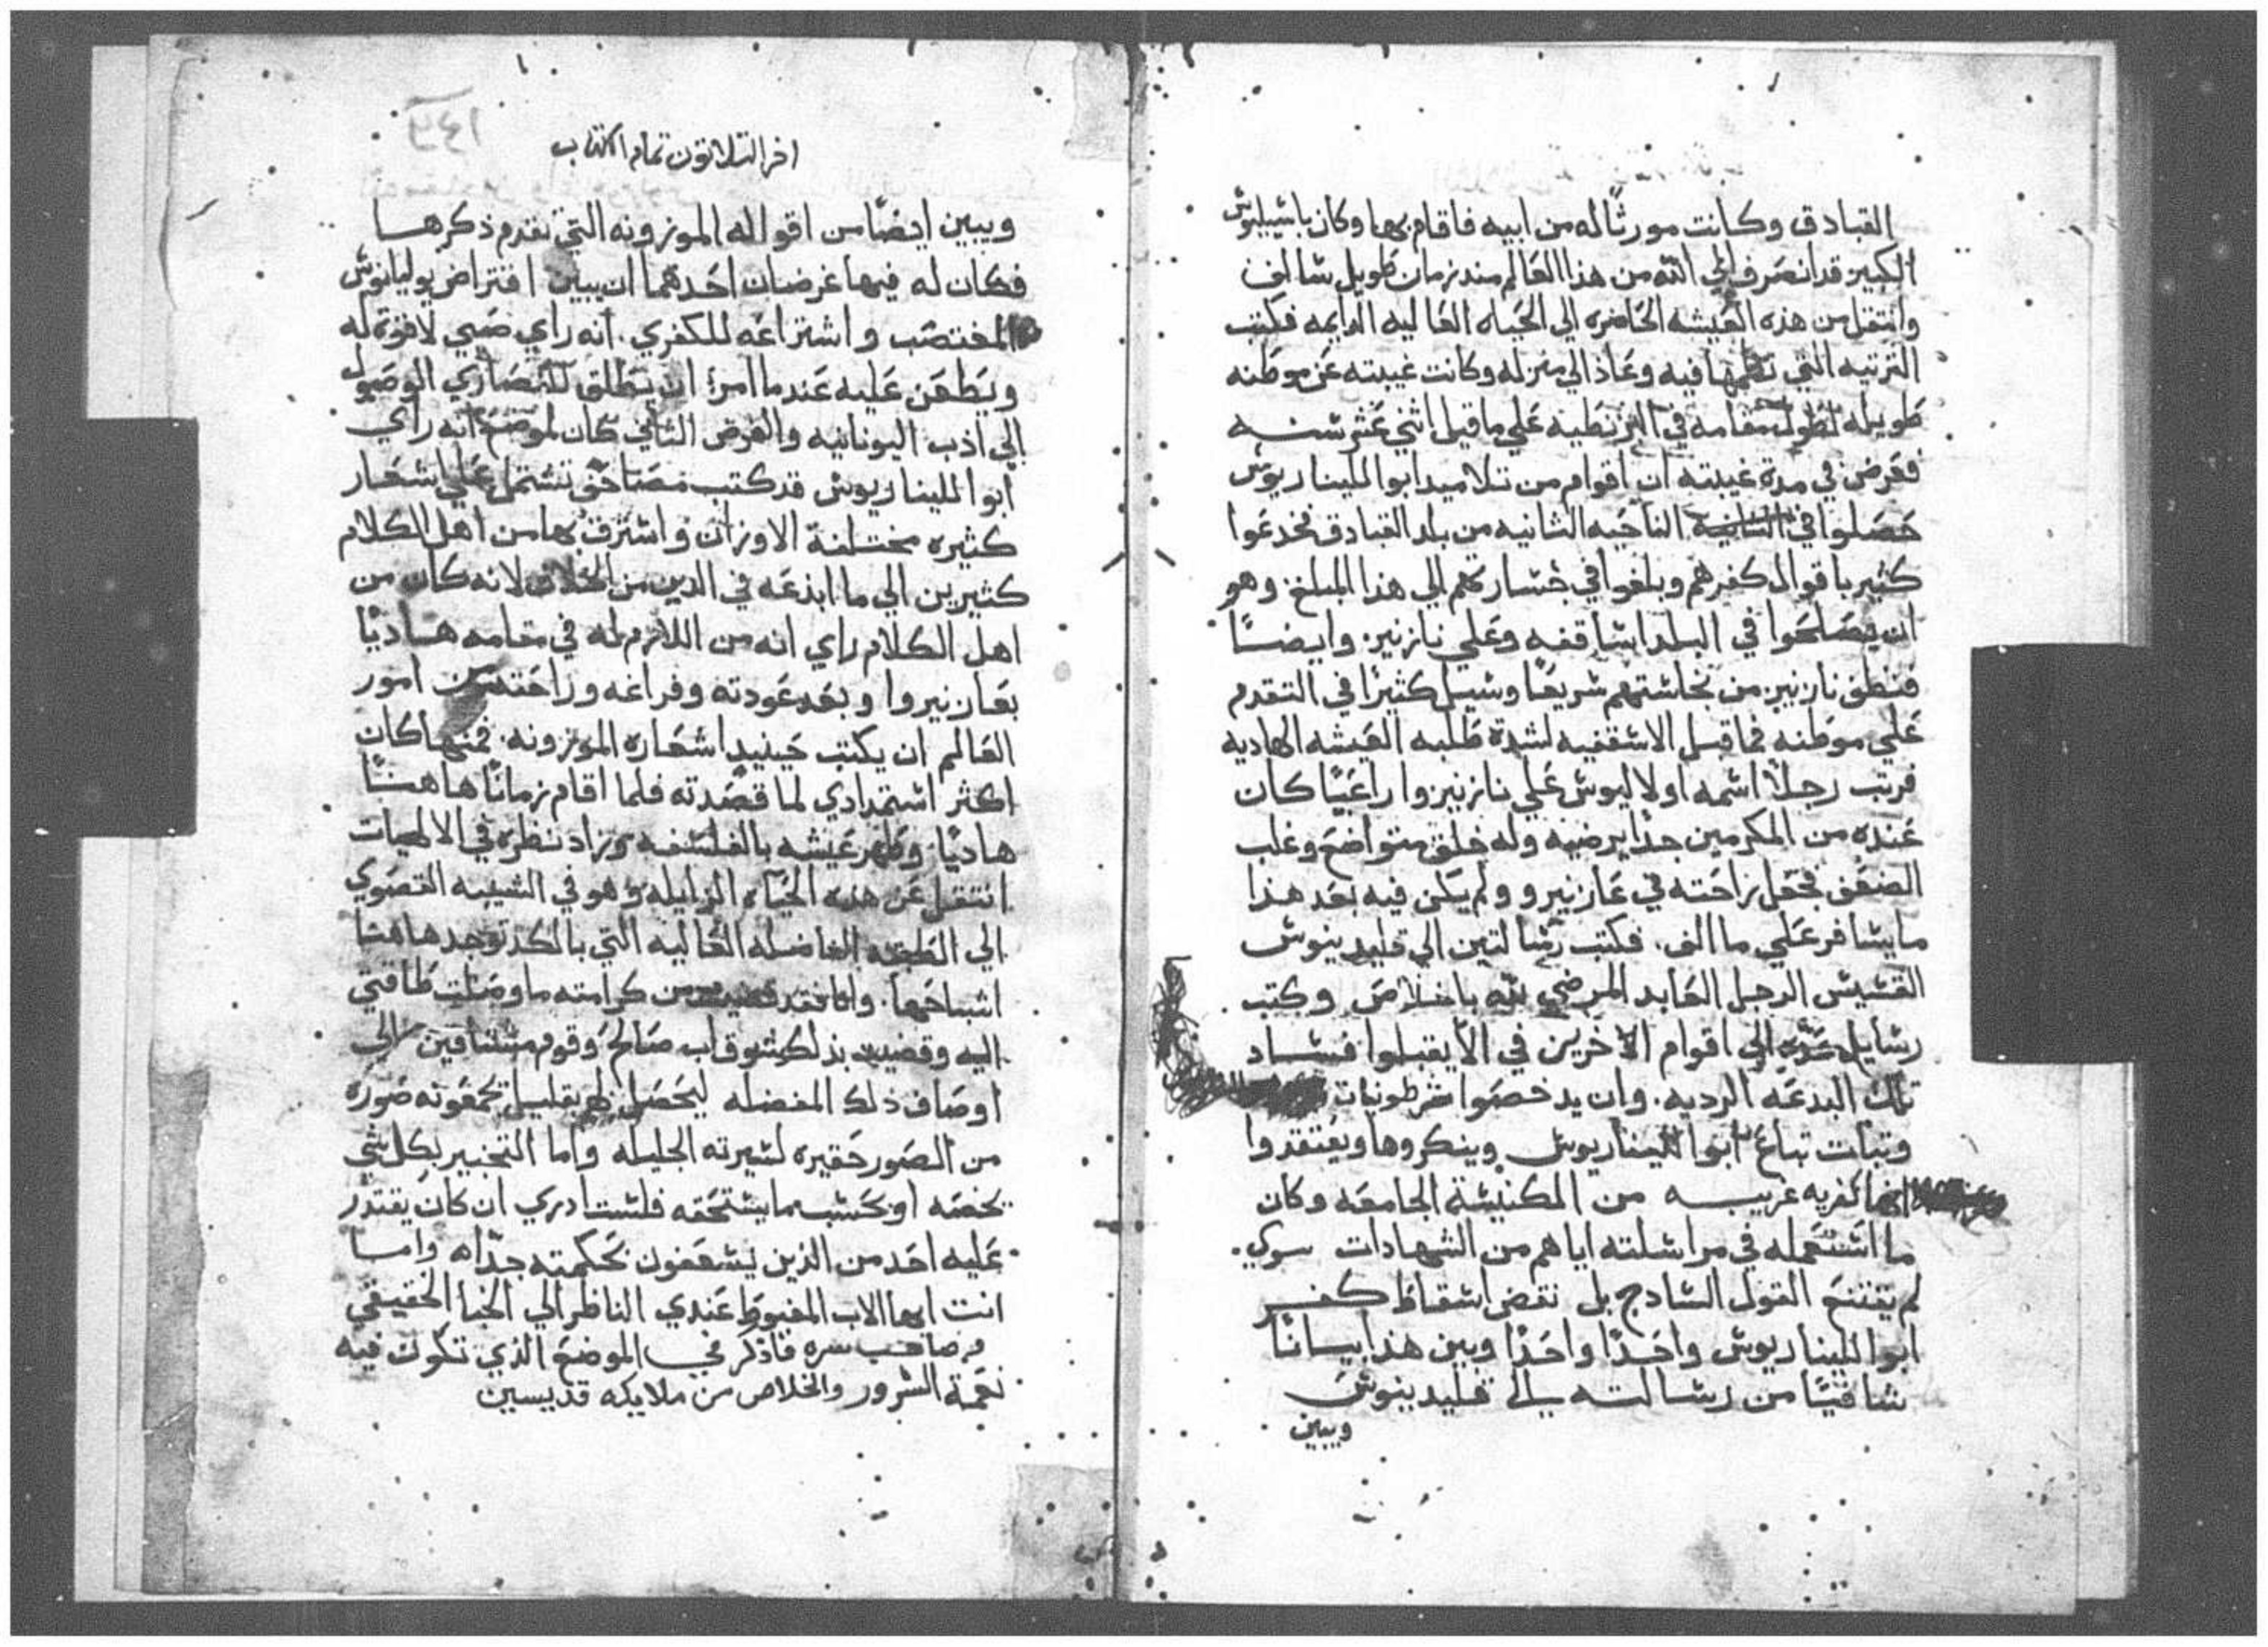 القبادق وكانت مورثًا له من ابيه فاقام بها وكان باشيليوش
الكبير قد انصرف الي الله من هذا العالم مند زمان طويل شالف
وانتقل من هذه العيشه الحاضره الي الحياه العاليه الدايمه فكتب
الترتيه التي نظمها فيه وعاد الي منزله وكانت غيبته عن موطنه
طويله لطول مقامه في البزنطيه علي ما قيل اثني عشر سنه
فعرض في مدة غيبته ان اقوام من تلاميد ابوالليناريوش
حصلوا في الناحيه الثانيه من بلد القبادق فخدعوا
كثير باقوال كفرهم وبلغوا في خشارتهم الي هذا المبلغ وهو
ان يصلحوا في البلد اشاقفه وعلي نازنير. وايضًا
فنطق نازنير من نجاشتهم شريعًا وشيل كثيرًا في التقدم
علي موطنه فما قبل الاشقفيه لشدة طلبه العيشه الهاديه
فرتب رجلًا اشمه اولاليوش علي نازنيزوا راعيًا كان
عنده من المكرمين جدا يرضيه وله خلق متواضع وغلب
الضعف فجعل راحته في عازنيرو ولم يكن فيه بعد هذا
مايشافر علي ما الف. فكتب رشالتين الي قليدينوش
القشيش الرجل العابد المرضي لله باخلاص وكتب
رشايل الي اقوام الاخرين في الا يقبلوا فشاد
تلك البدعه الرديه. وان يدحصوا شرطونيات
وتبات تباع ابوالليناريوش وينكروها ويعتقدوا
انها كفريه غريبه من الكنيشة الجامعه وكان
ما اشتعمله في مراشلته اياهم من الشهادات سوي.
لم يقتنع القول الشادج بل نقض اشقاط كفر
ابوالليناريوش واحدًا واحدًا وبين هذا بيانًا
شافيًا من رشالته الي قليدينوش
ويبين
اخر التلاتون تمام الكتاب
ويبين ايضًا من اقواله الموزونه التي تقدم ذكرها
فكان له فيها غرضان احدهما ان يبين افتراض يوليانوش
المغتصب واشتراعه للكفري. انه راي ضيي لا قوة له
ويطعن عليه عندما امر ان يطلق للنصاري الوصول
الي ادب اليونانيه والغرض الثاني كان لموضع انه راي
ابوالليناريوش قد كتب مصاحف تشتمل علي اشعار
كثيره مختلفة الاوزان واشترق بها من اهل الكلام
كثيرين الي ما ابدعه في الدين من لانه كان من
اهل الكلام راي انه من اللازم له في مقامه هاديًا
بعازنيروا وبعد عودته وفراغه وراحته من امور
العالم ان يكتب حينيد اشعاره الموزونه. فمنها كان
اكثر اشتمدادي لما قصدته فلما اقام زمانًا هاهنا
هاديًا وطهر عيشه بالفلشفه وزاد نظره في الالهيات
انتقل عن هده الحياه الزايله وهو في الشيبه القصوي
الي الفاضله العاليه التي بالكد توجد هاهنا
اشباحها. وانا فقد من كرامته ما وصلت طاقتي
اليه وقضيت بذلك شوق اب صالح وقوم مشتاقين الي
اوصاف ذلك المفضله ليحصل لهم بقليل تجمعونه صورة
من الصور حقيره لشيرته الجليله واما التخبير بكل شي
يخصه او بحشب ما يشتحقه فلشت ادري ان كان يقتدر
عليه احد من الذين يشغفون بحكمته جدًاه واما
انت ايها الاب المغبوط عندي الناظر الي الخبا الحقيقي
وصاحب سره فاذكر في الموضع الذي تكون فيه
نعمة الشرور والخلاص من ملايكه قديسين